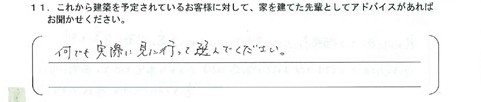 11．これから建築を予定されているお客様に対して、家を建てた先輩としてアドバイスがあれば
お聞かせください。
何でも実際に見に行って選んでください。